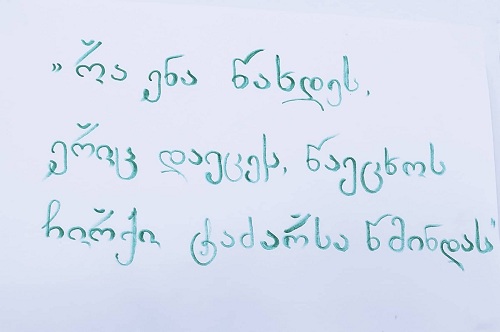 „რა ენა წახდეს,
ერიც დაეცეს, წაეცხოს
ჩირქი ტაძარსა წმინდას"